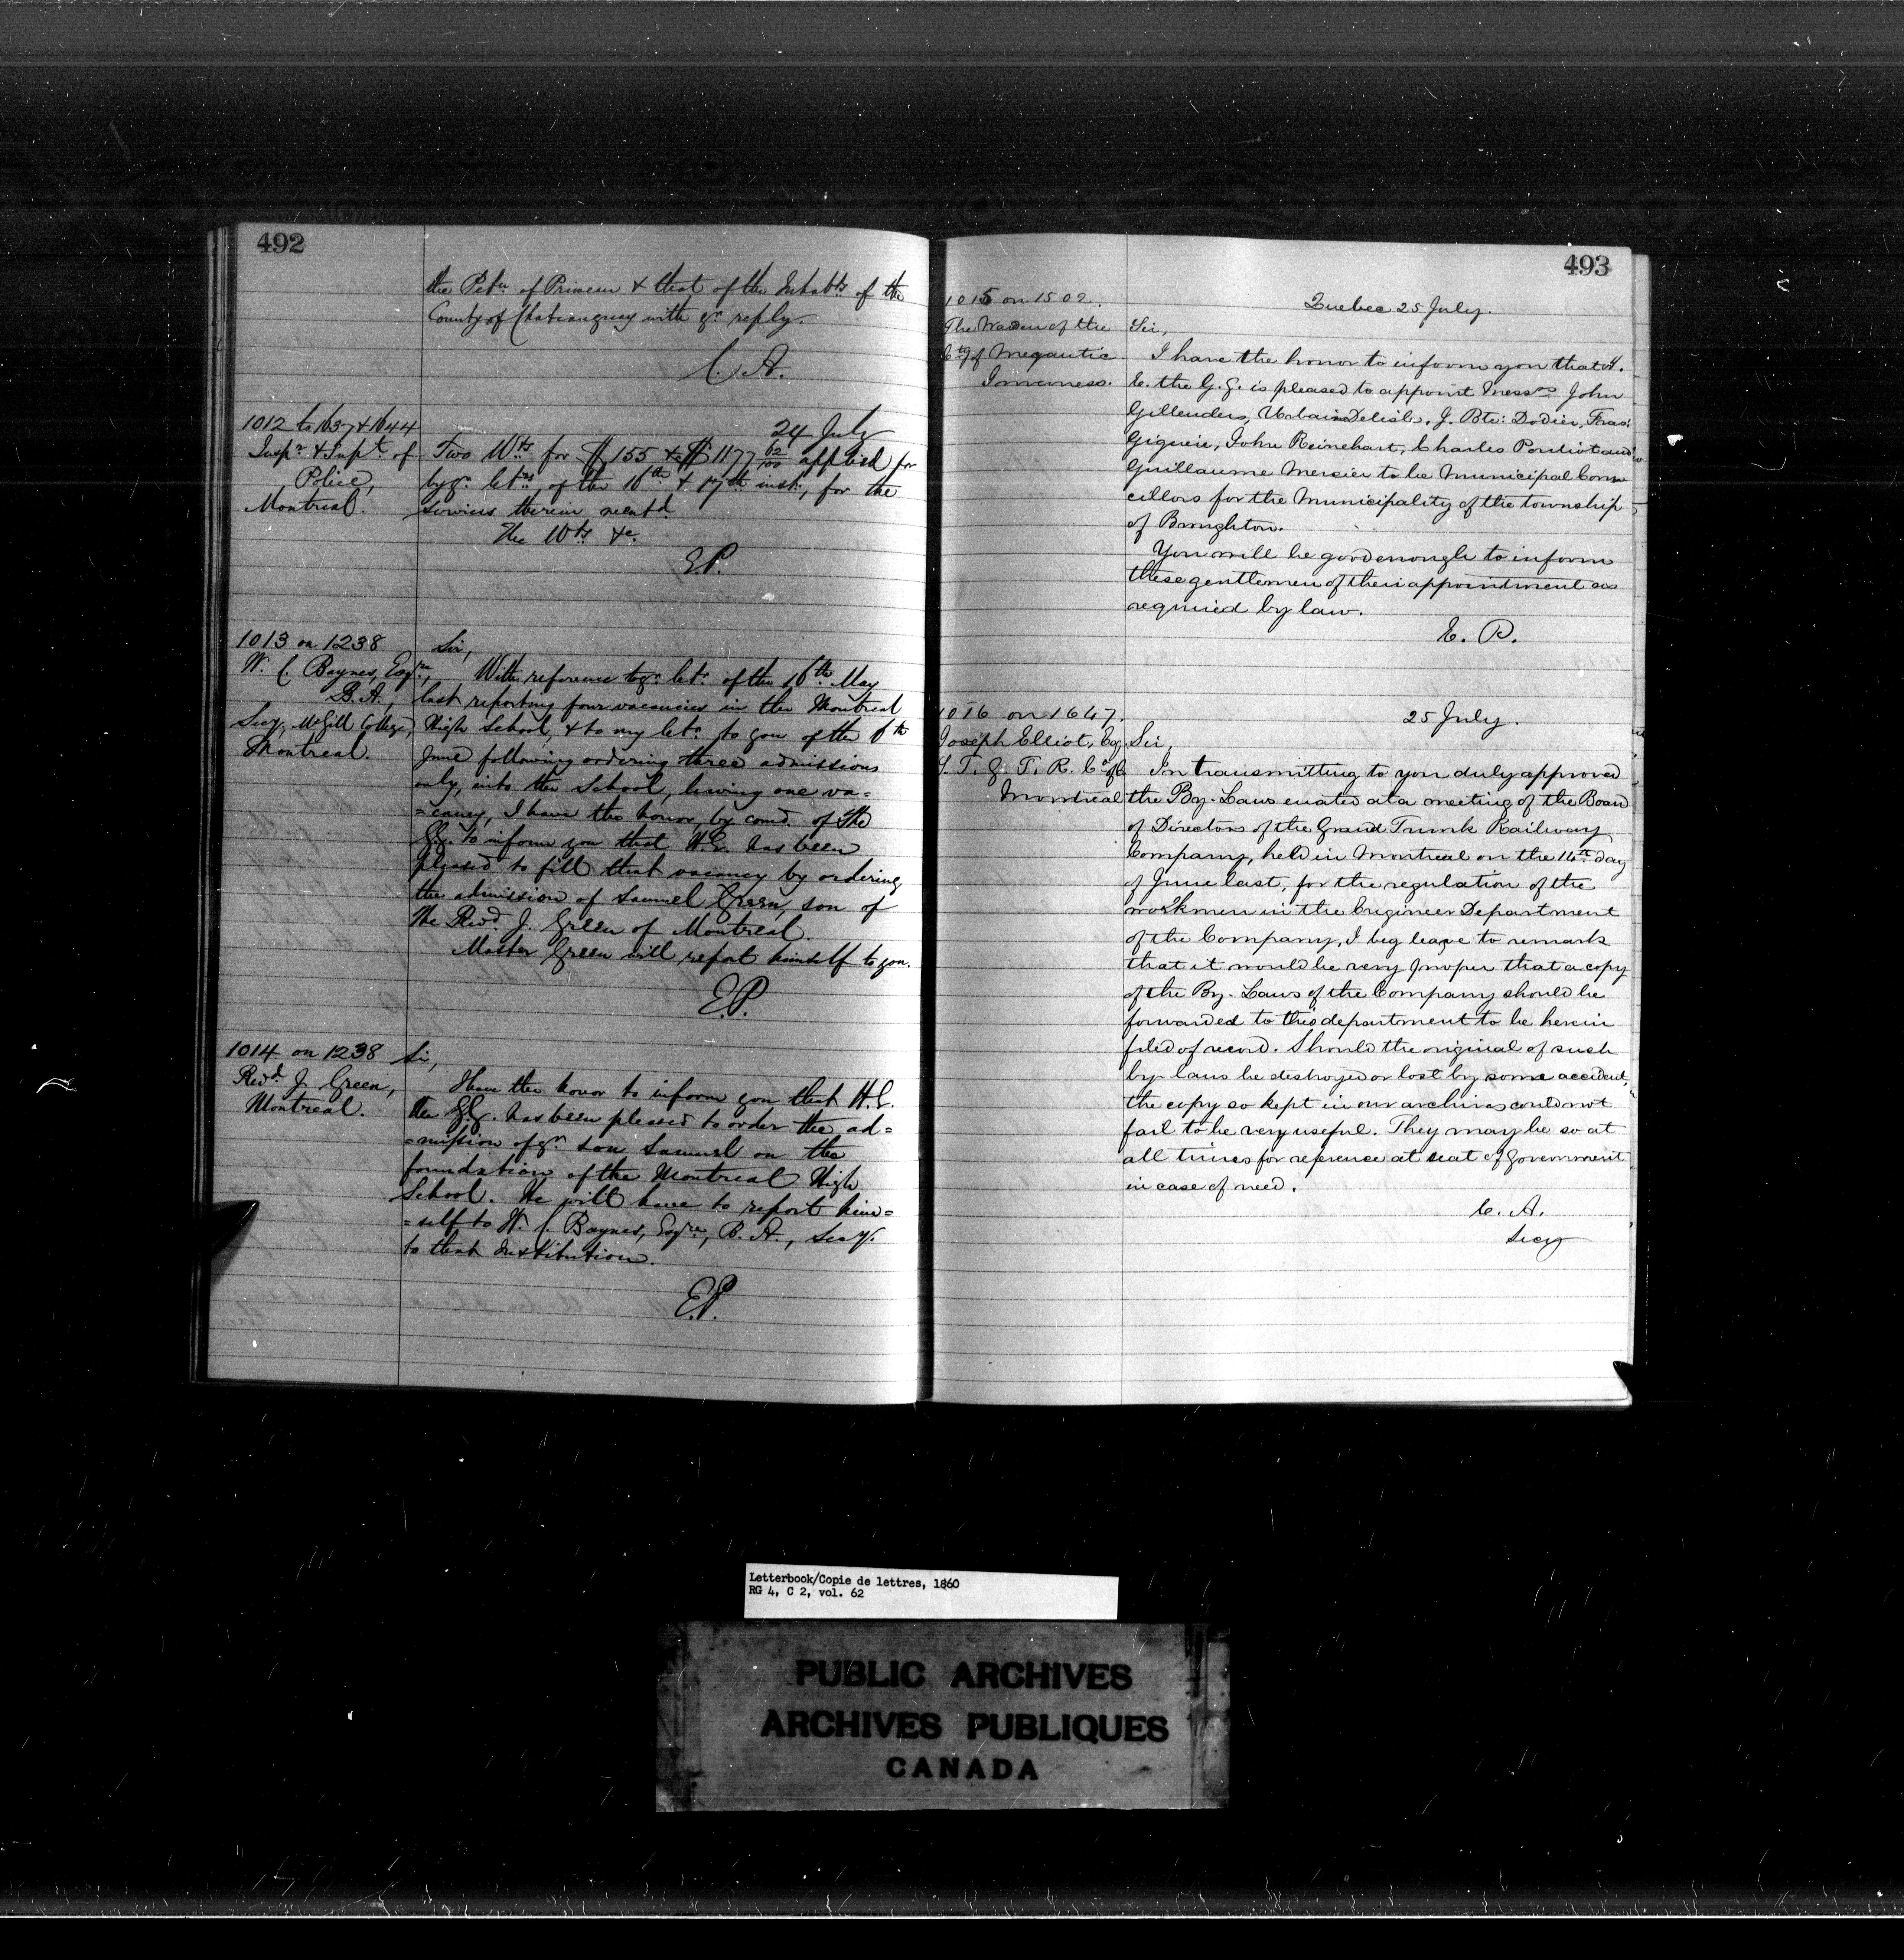 492
the Petn. of Primeau & that of the Inhabts. of the
County of Chateauguay with yr. reply.
C. A.
1012 to 1637 & 1644
Inspr. & Supt. of
Police,
Montreal.
24 July
Two Wts. for $155 & $1177 62/100 applied for
by yr. letrs. of the 16th & 17th inst., for the
services therein mentd.
The Wts. &c.
E.P.
1013 on 1238
W. C. Baynes, Esqre,
B. A.,
Secy, McGill College,
Montreal.
Sir,
With reference to yr. letr. of the 16th May
last reporting four vacancies in the Montreal
High School, & to my letr. to you of the 6th
June following ordering three admissions
only, into the School, leaving one va=
=cancy, I have the honor, by comd. of the
G.G. to inform you that H.E. has been
pleased to fill that vacancy by ordering
the admission of Samuel Green, son of
the Revd. J. Green of Montreal.
Master Green will report himself to you.
E.P.
1014 on 1238
Revd. J. Green,
Montreal.
Sir,
Have the honor to inform you that H.E.
the G.G. has been pleased to order the ad=
=mission of yr. son Samuel on the
foundation of the Montreal High
School. He will have to report him=
=self to W. C. Baynes, Esqre, B. A., Secy.
to that Institution.
E.P.
493
1015 on 1502.
The Warden of the
Cty of Megantic
Inverness.
Quebec 25 July.
Sir,
I have the honor to inform you that H.
E. the G.G. is pleased to appoint Messrs John
Gillenders, Urbain Delisle, J. Bte: Dodier, Fras:
Giguere, John Reinehart, Charles Pouliot and
Guillaume Mercier to be Municipal Coun
cillors for the Municipality of the township
of Broughton.
You will be good enough to inform
these gentlemen of their appointment as
required by law.
E. P.
1016 on 1647.
Joseph Elliot, Esq
S. T. G. T. R. Co. of C.
Montreal
25 July.
Sir,
In transmitting to you duly approved
the By-Laws enated at a meeting of the Board
of Directors of the Grand Trunk Railway
Company, held in Montreal on the 14th day
of June last, for the regulation of the
workmen in the Engineer Department
of the Company, I beg leave to remark
that it would be very proper that a copy
of the By-Laws of the Company should be
forwarded to this department to be herein
filed of record. Should the original of such
by-laws be destroyed or lost by some accident,
the copy so kept in our archives could not
fail to be very useful. They may be so at
all times for reference at seat of Government
in case of need.
C. A.
Secy
Letterbook/Copie de lettres, 1860
RG 4, C 2, vol. 62
PUBLIC ARCHIVES
ARCHIVES PUBLIQUES
CANADA